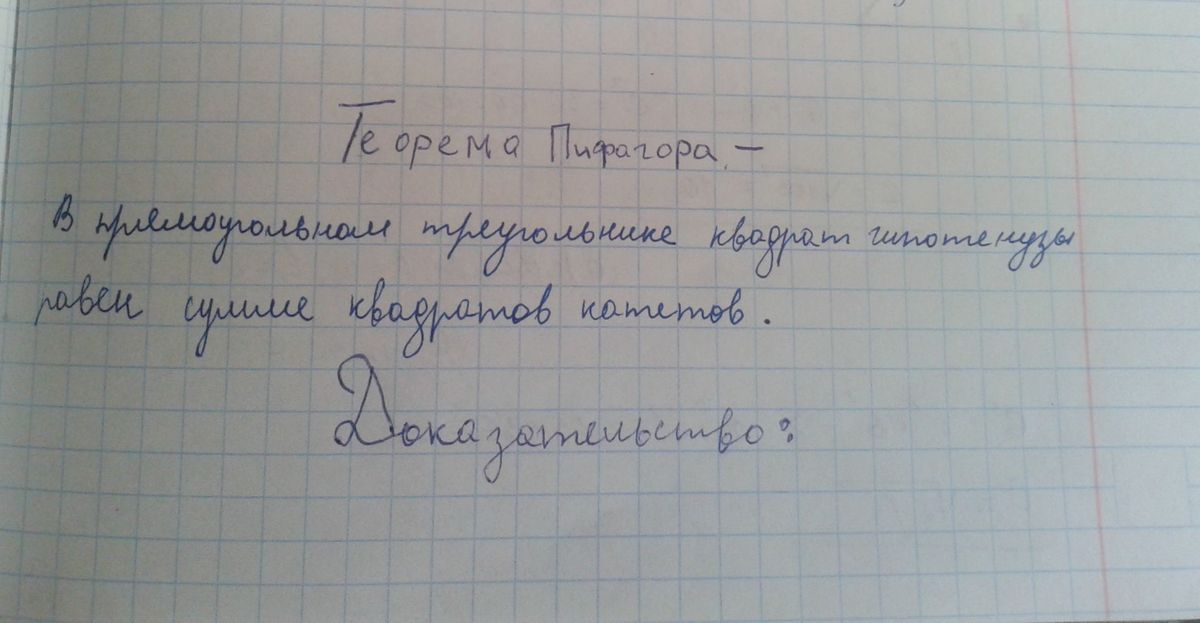 Теорема Пифагора. –
В прямоугольном треугольнике квадрат гипотенузы
равен сумме квадратов катетов.
Доказательство: